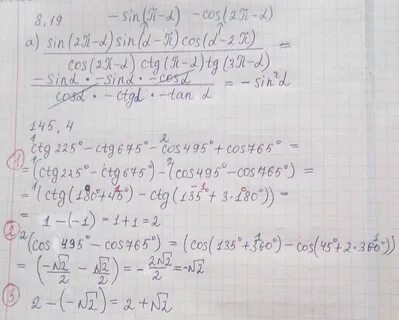 8.19 -sin(π-α) -cos(2π-α)
а) sin(2π-α) sin(α-π) cos(α-2π)
cos(2π-α) ctg(π-α) tg(3π-α) =
-sinα · -sinα · -cosα
cosα · -ctgα · -tan α = -sin²α
145.4
¹ctg225° - ctg675° - ²cos495° + cos765° =
1 = ¹(ctg225° - ctg675°) - ²(cos495° - cos765°) =
= ¹(ctg(180°+45°) - ctg(135° + 3·180°)) =
= 1-(-1) = 1+1 = 2
2 ²(cos 495° - cos765°) = (cos(135°+360°) - cos(45°+2·360°))
= (-√2/2 - √2/2) = -2√2/2 = -√2
3 2-(-√2) = 2+√2